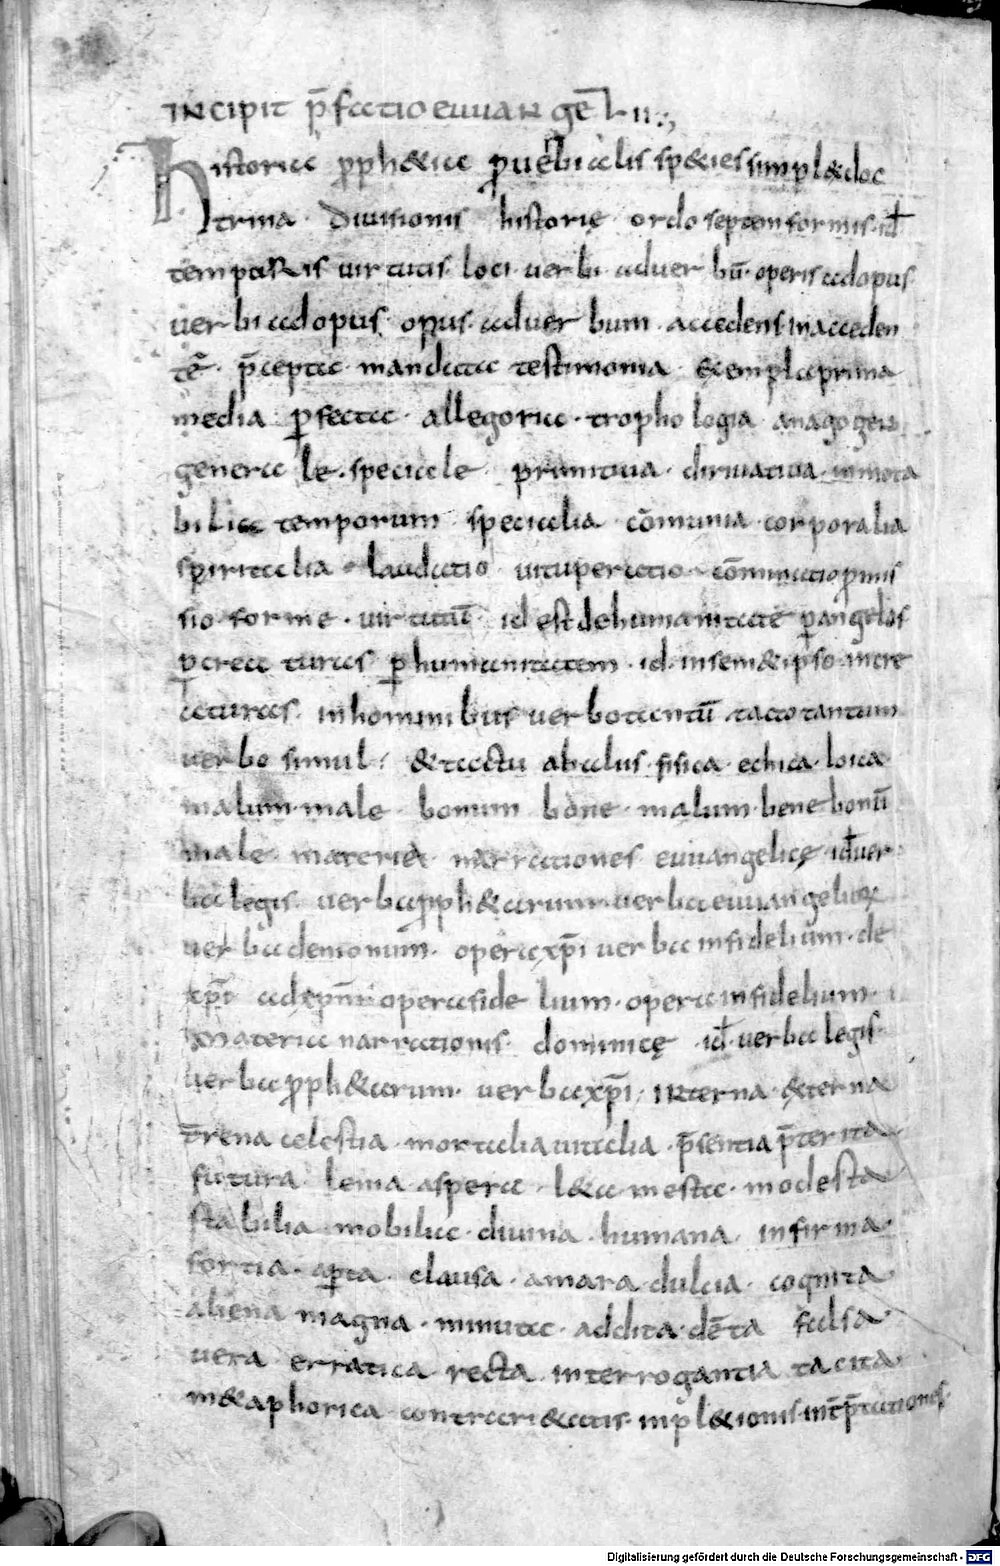 INCIPIT p̄fatio euuangelii:,
historia pph&ia puerbialis sp&ies simpl& doc
trina · divisionis historię ordo septemformis · id
temporis virtutis loci · verbi adverbū · operis adopus
verbi adopus · opus adverbum · accedens inacceden
tē · p̄cepta mandata testimonia · exempla prima
media pfecta · allegoria · trophologia anagogen
generale · speciale · primitiva · dirivativa · inmota
bilia temporum specialia cōmunia corporalia
spiritalia · laudatio vituperatio · cōminatio pmis
sio forme · virtutū id est dehumanitate p angelos
p creaturas p humanitatem · id · insem&ipso · incre
aturas · inhominibus verbo tantū tacto tantum
verbo simul · & tactu abalus · fisica · ethica · loica
malum · male bonum bone · malum · bene bonū
male materia narrationes euuangelicę · id ver
ba legis · verba pph&arum · verba euuangelii
verba demonum · opera xp̄i verba infidelium · de
xp̄i ad xp̄m opera fidelium · opera infidelium ·
materia narrationis dominicę · id · verba legis
verba pph&arum · verba xp̄i · INterna · &terna
t̄rena celestia · mortalia vitalia · p̄sentia p̄terita
futura lenia · aspera · l&a mesta · modesta
stabilia mobilia · divina · humana · infirma
fortia · apta · clausa · amara · dulcia · cognita
aliena magna · minuta · addita · dēta falsa
vera erratica recta interrogantia tacita
m&aphorica contrari&atis · inpl&ionis · int̄p̄tationes
Digitalisierung gefördert durch die Deutsche Forschungsgemeinschaft - DFG